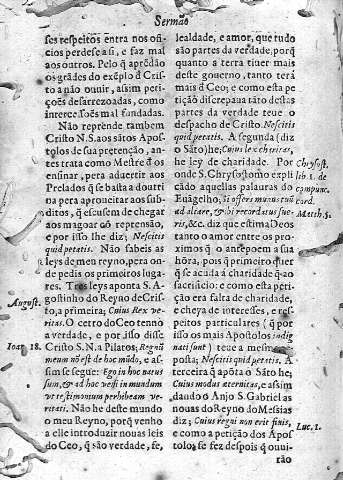 Sermão
ses respeitos entra nos nūcios
perdese a si, e faz mal
aos outros. Pelo q̃ aprēdão
os grãdes do exēplo d̃ Cristo
a não ouvir, assim petições
desarrezoadas, como
intercessões mal fundadas.
Não reprende tambem
Cristo N.S. aos sãtos Apostolos
de sua pretenção, antes
trata como Mestre d̃ os
ensinar, pera advertir aos
Prelados q̃ se basta a doutrina
pera aproveitar aos subditos,
q̃ escusem de chegar
aos magoar cō reprensão,
e por isso lhe diz; Nescitis
quid petatis. Não sabeis as
leys de meu reyno, pera onde
pedis os primeiros lugares.
Tres leys aponta S. Agostinho
do Reyno de Cristo,
a primeira; Cuius Rex veritas.
O cetro do Ceo tenno
a verdade, e por isso disse
Cristo S.N. a Pilatos; Regnũ
meum nō est de hoc mũdo, e assim
se segue: Ego in hoc natus
sum, & ad hoc vesti in mundum
vt testimonium perhibeam veritati.
Não he deste mundo
o meu Reyno, porq̃ venho
a elle introduzir nouas leis
do Ceo, q̃ são verdade, fe,
August.
Ioan. 18.
lealdade, e amor, que tudo
são partes da verdade, porq̃
quanto a terra tiuer mais
deste governo, tanto terá
mais d̃ Ceo; e como esta petição
discrepaua tãto destas
partes da verdade teue o
despacho de Cristo. Nescitis
quid petatis. A segunda (diz
o Sãto) he; Cuius lex charitas,
he ley de charidade. Por
onde S. Chrysostomo explicãdo
aquellas palauras do
Euãgelho; Si offers munus tuũ
ad altare, & ibi recordatus fueris,
&c. diz que estima Deos
tanto o amor entre os proximos
q̃ o antepoem a sua
hōra, pois q̃ primeiro quer
q̃ se acuda á charidade q̃ ao
sacrificio: e como esta petição
era falta de charidade,
e cheya de interesses, e respeitos
particulares (q̃ por
isso os mais Apostolos indignati
sunt) teue a mesma reposta;
Nescitis quid petatis. A
terceira q̃ apōta o Sãto he;
Cuius modus aeternitas, e assim
dando o Anjo S. Gabriel as
nouas do Reyno do Messias
diz; Cuius regni non erit finis,
e como a petição dos Apostolos
se fez despois q̃ ouuirão
Chrysost.
lib. 1. de
compunc.
cord.
Matth. 5.
Luc. 1.